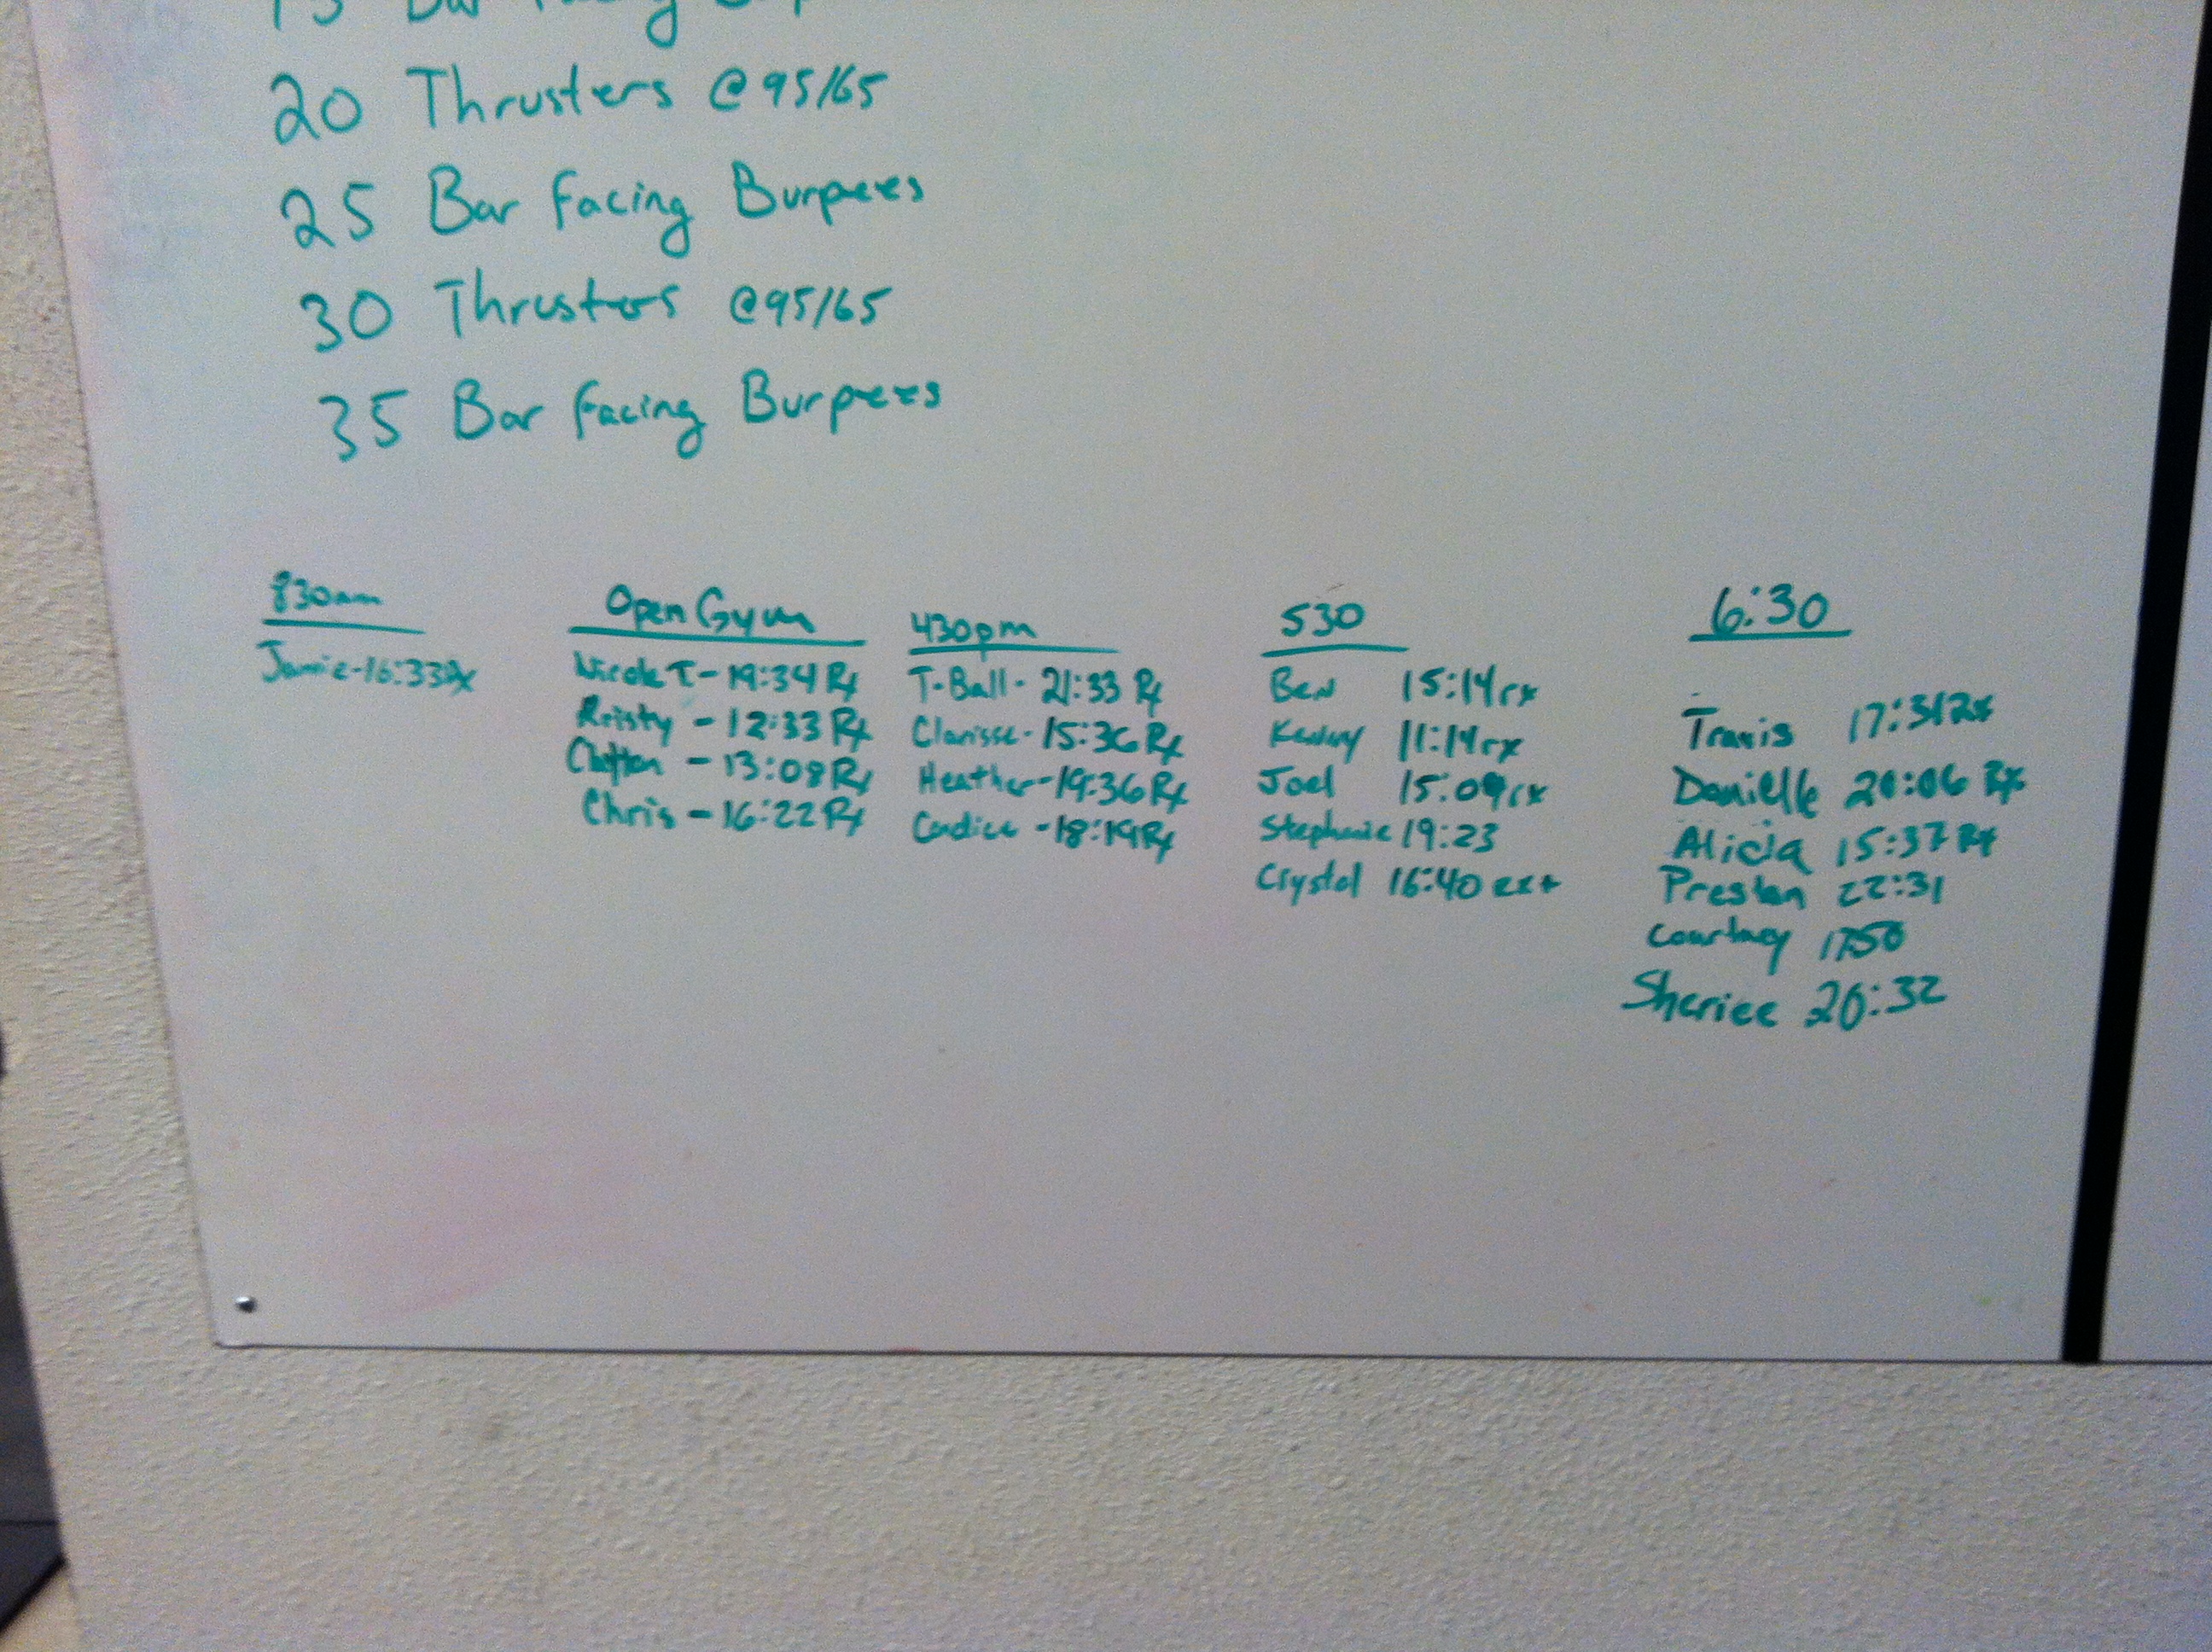 20 Thrusters @95/65
25 Bar Facing Burpees
30 Thrusters @95/65
35 Bar Facing Burpees
830am
Jamie-16:33Rx
Open Gym
Nicole T-19:34 Rx
Kristy - 12:33 Rx
- 13:08 Rx
Chris - 16:22 Rx
430pm
T-Ball - 21:33 Rx
Clarisse - 15:36 Rx
Heather - 19:36 Rx
Candice - 18:19 Rx
530
Ben 15:14 rx
Kenny 11:14 rx
Joel 15:09 rx
Stephanie 19:23
Crystal 16:40
6:30
Travis 17:31 Rx
Danielle 20:06 Rx
Alicia 15:37 Rx
Preston 22:31
Courtney 1750
Sheriee 20:32